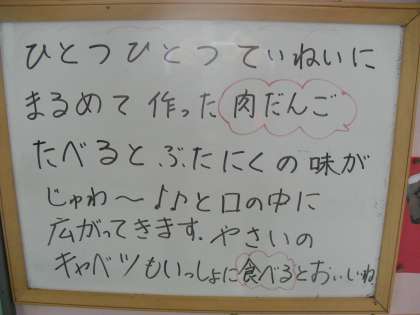 ひとつひとつ ていねいに
まるめて 作った 肉だんご
たべると ぶたにくの味が
じゅわ〜♪♪と口の中に
広がってきます. やさいの
キャベツもいっしょに食べるとおいしいね